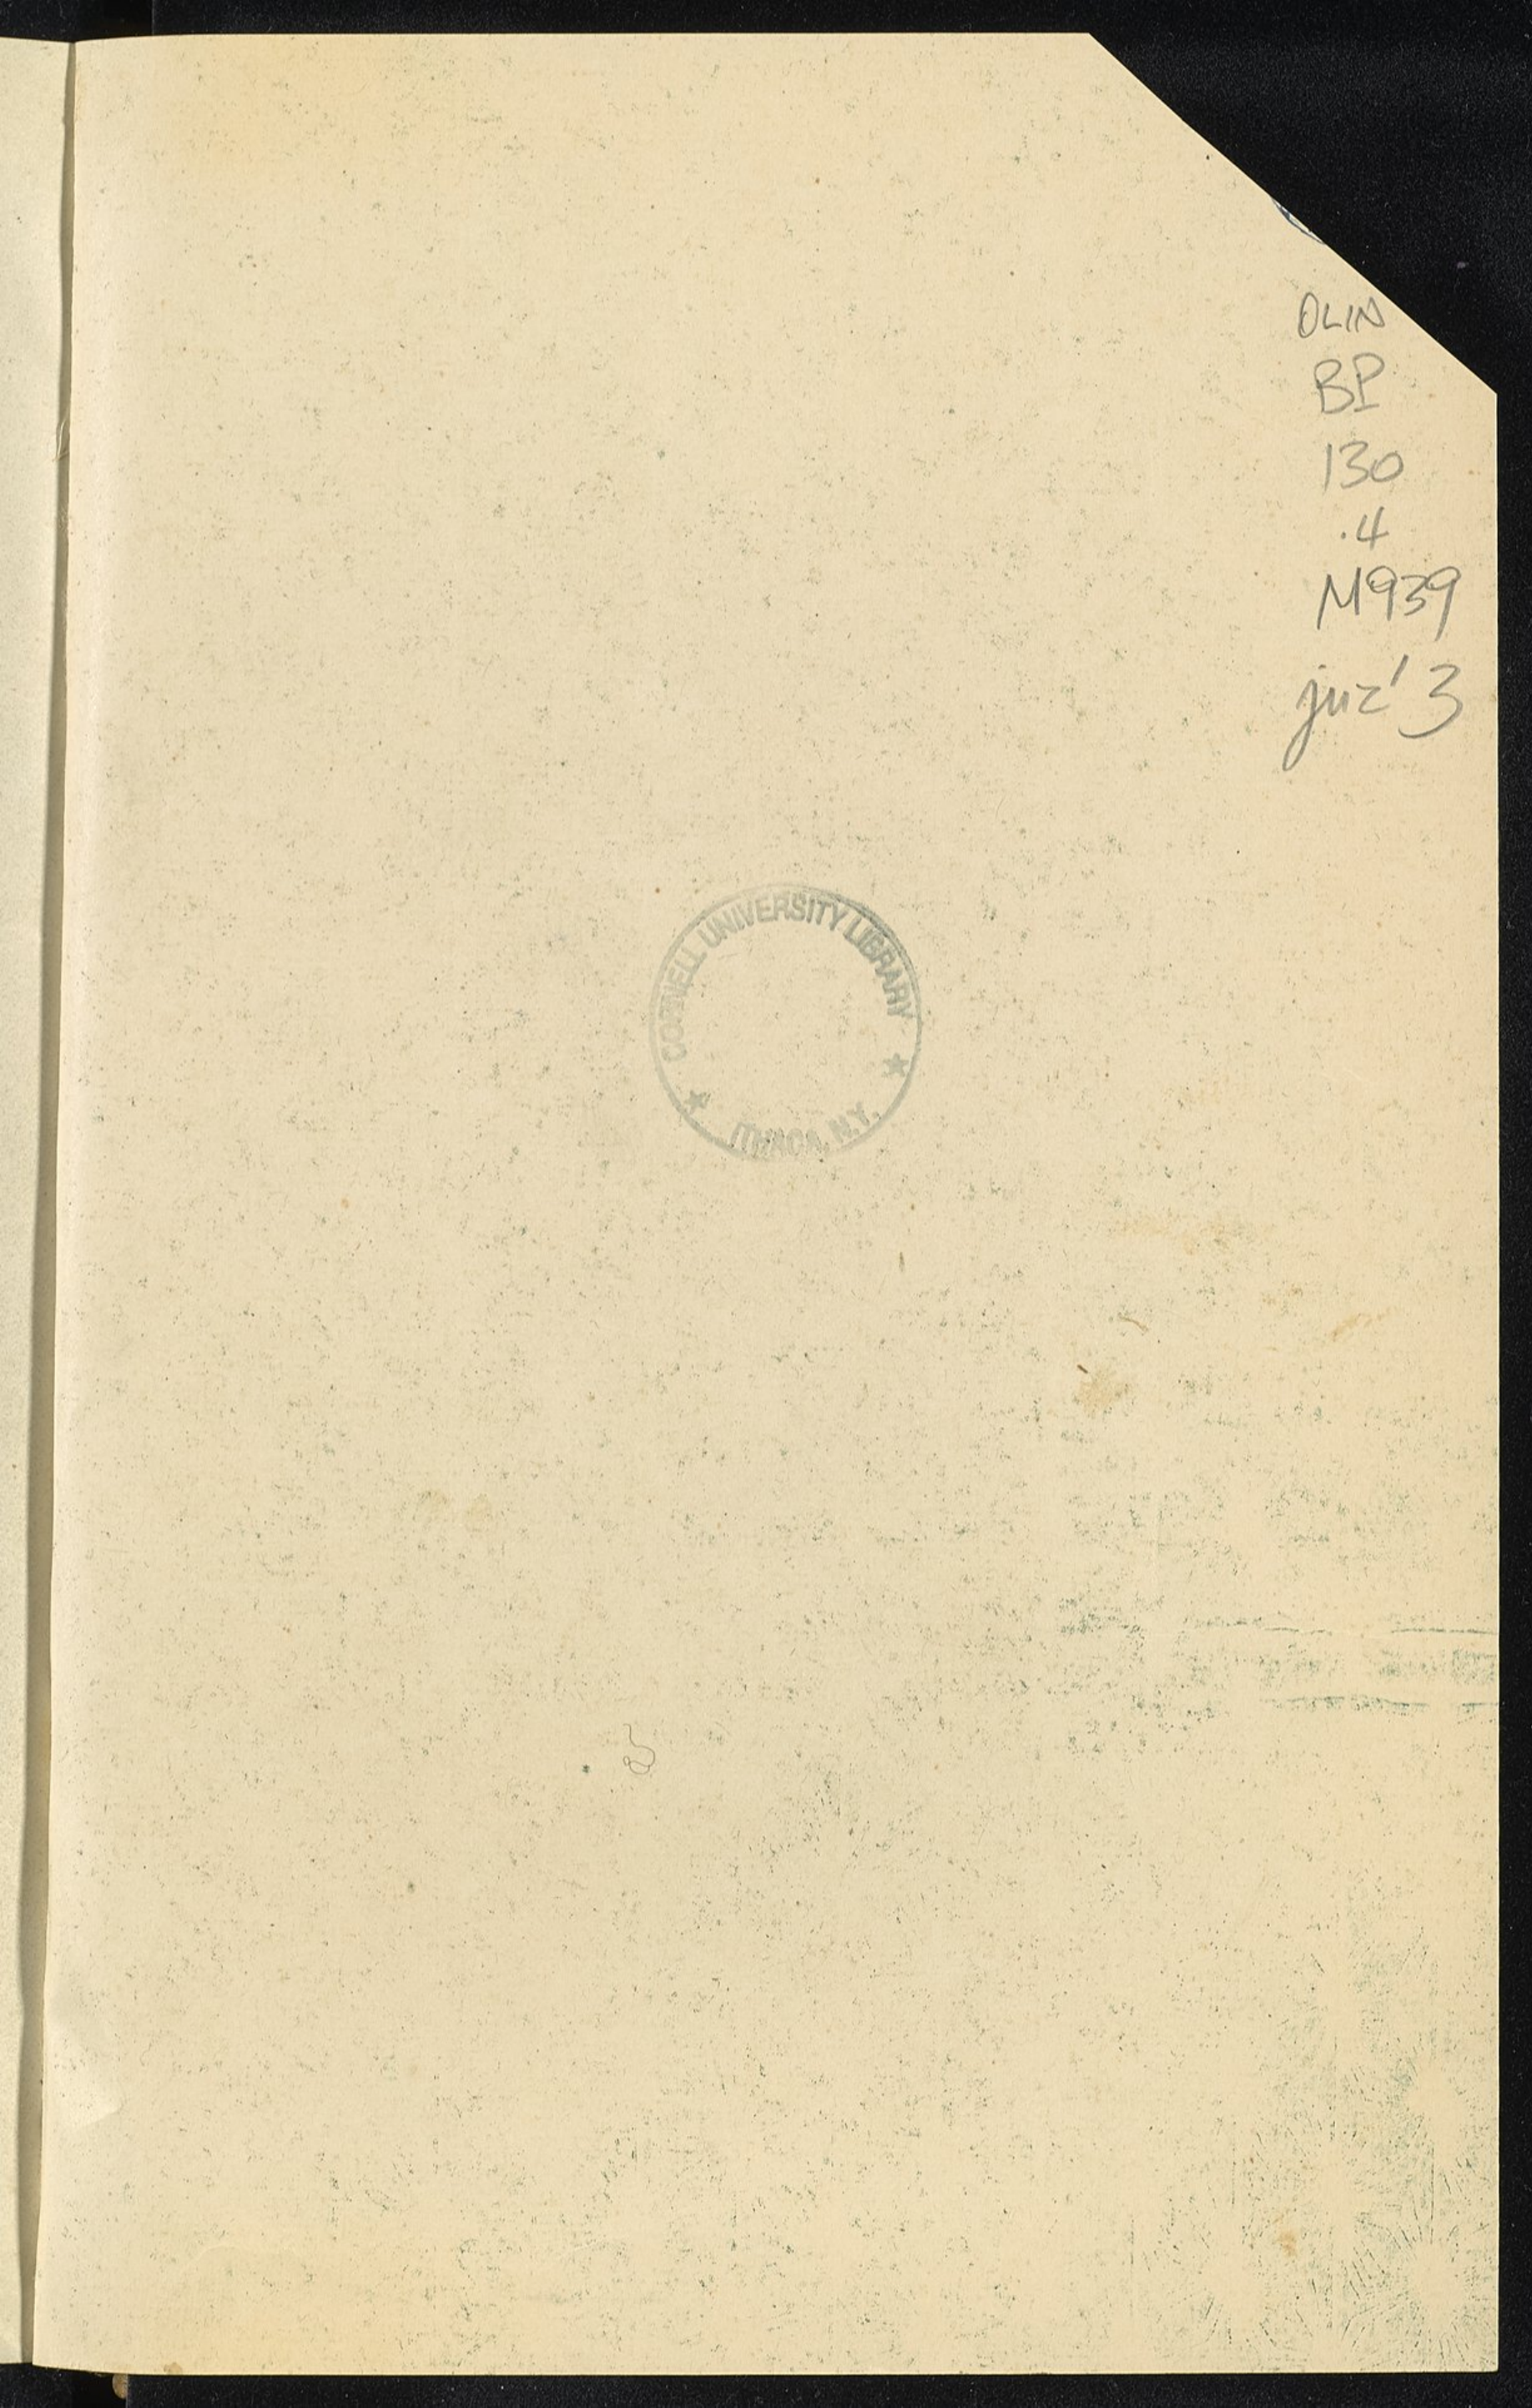 OLIN
BP
130
.4
M939
juz' 3
CORNELL UNIVERSITY LIBRARY
ITHACA, N.Y.